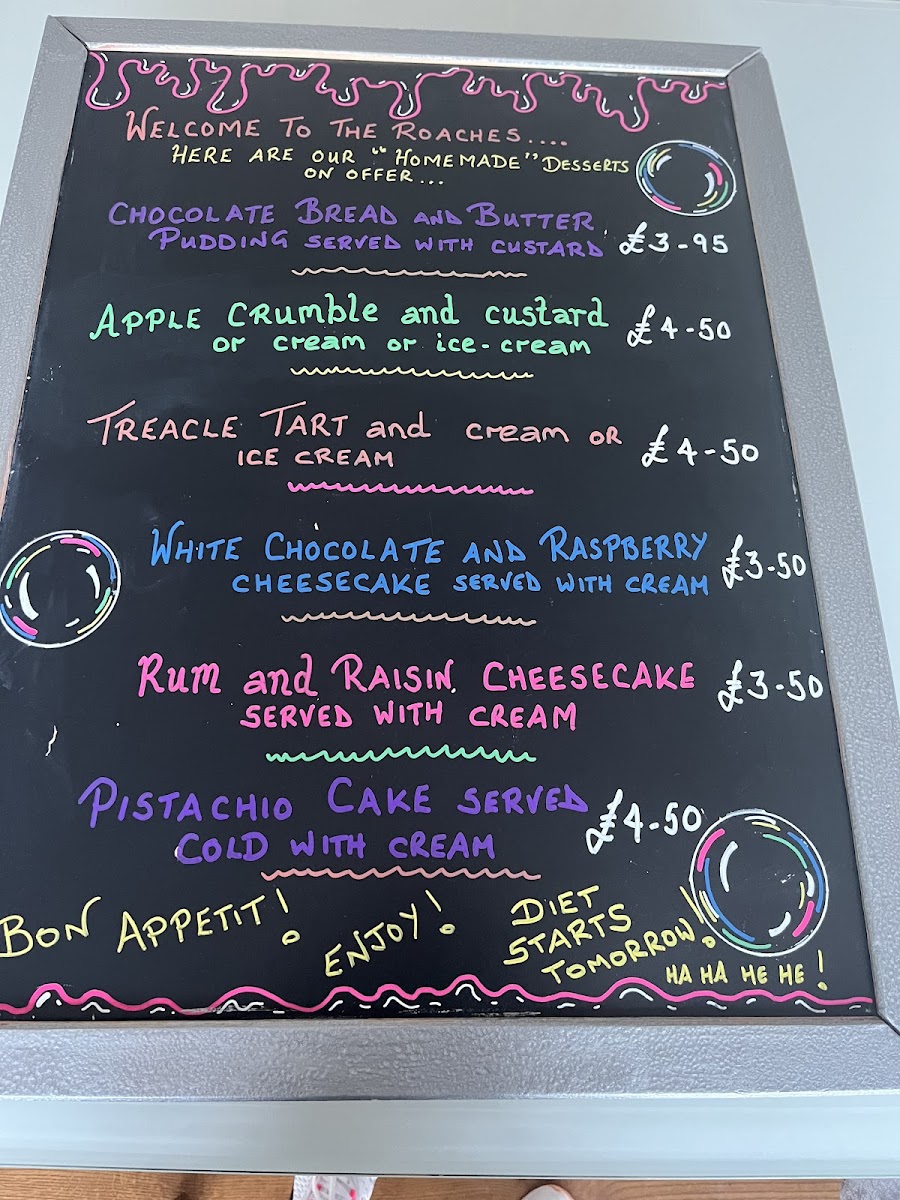 WELCOME TO THE ROACHES....
HERE ARE OUR "HOMEMADE" DESSERTS
ON OFFER...
CHOCOLATE BREAD AND BUTTER
PUDDING SERVED WITH CUSTARD £3-95
APPLE CRumble and custard
or cream or ice-cream £4-50
TREACLE TART and cream OR
ICE CREAM £4-50
WHITE CHOCOLATE AND RASPBERRY
CHEESECAKE SERVED WITH CREAM £3-50
Rum and RAISIN CHEESECAKE
SERVED WITH CREAM £3-50
PISTACHIO CAKE SERVED
COLD WITH CREAM £4-50
BON APPETIT!
ENJOY!
DIET
STARTS
TOMORROW!
HA HA HE HE!